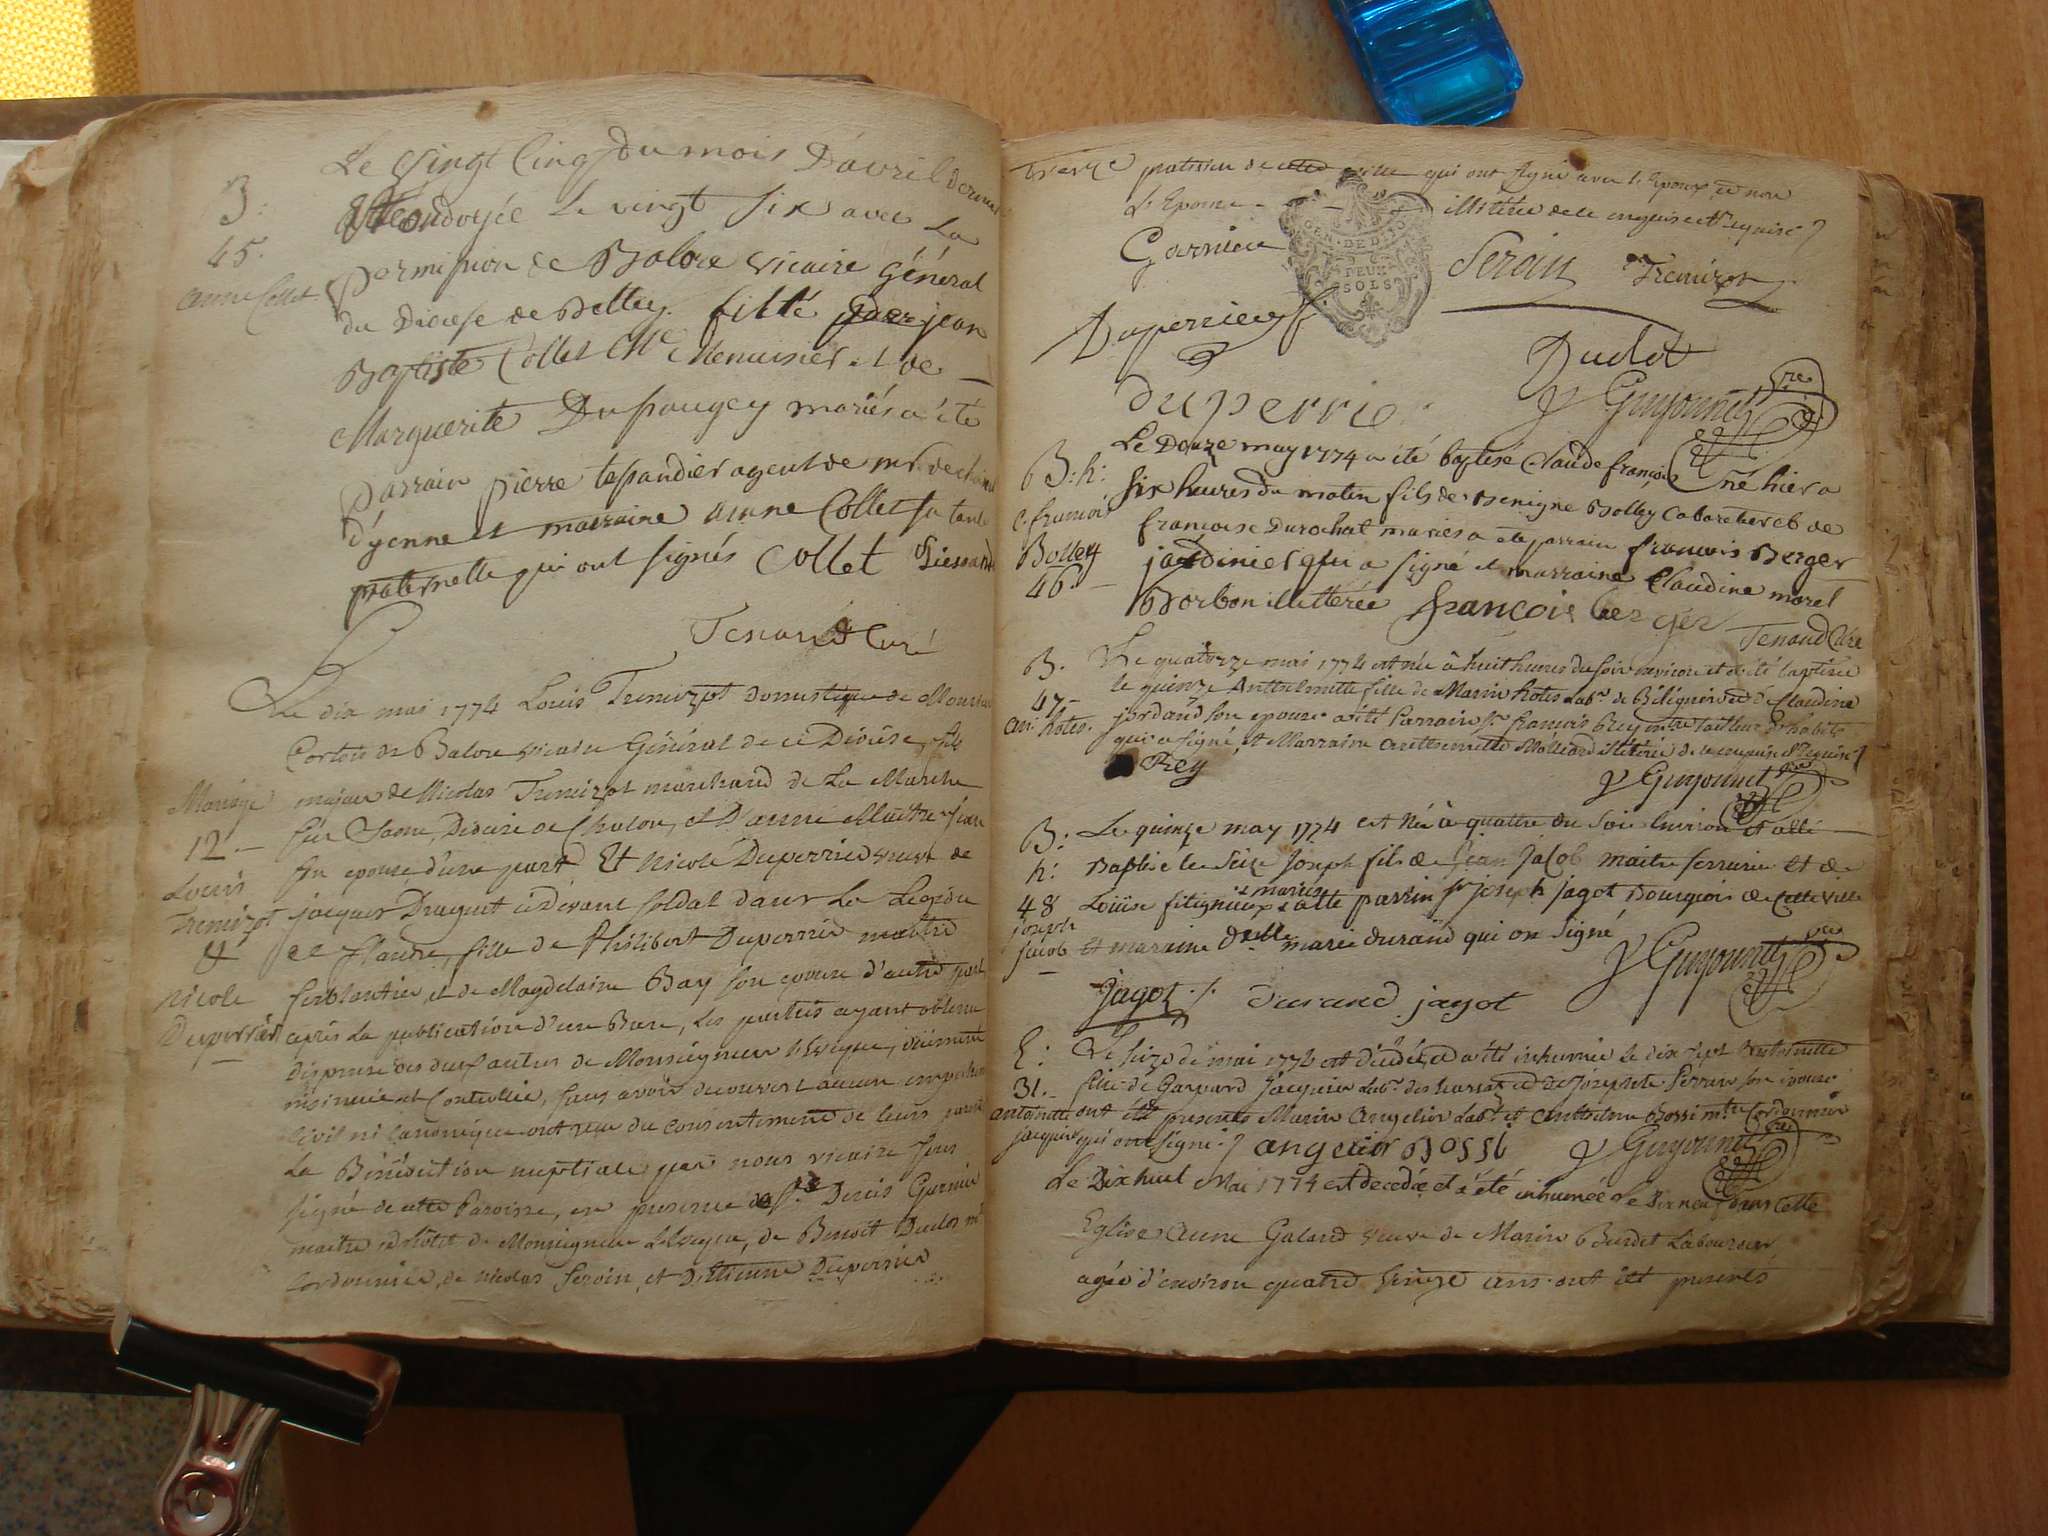 Le Vingt Cinq du mois D'avril dernier
B:
45.
anne Collet
ondoyée Le vingt six avec La
permission de Balore vicaire général
du Diocese de Belley. fille jean
Baptiste Collet Mre Menuisier et de
Marguerite Dupaugey mariés a été
parrain pierre tepandier agent de mr.
d'yenne et marraine anne Collet sa tante
paternelle qui ont signés Collet
Tenand Curé
Le dix mai 1774 Louis Tremizot domestique de
Cortois de Balore vicaire Général de ce Diocèse, fils
Mariage
12
Louis
Tremizot
&
Nicole
Duperrier
majeur de Nicolas Tremizot marchand de La Marche
sur Saone, Diocèse de Chalon, et D'anne
son epouse d'une part Et Nicole Duperrier veuve de
jacques Draguet cidevant soldat dans La Legion
de flandre, fille de Philibert Duperrier maître
ferblantier, et de Magdelaine Bay son epouse d'autre part
après La publication d'un Ban, les parties ayant obtenu
dispense des deux autres de Monseigneur L'evêque, dûment
insinuée et Controllée, sans avoir decouvert aucun
civil ni canonique ont reçu du consentement de leurs
La Bénédiction nuptiale par nous vicaire sous
signé de cette Paroisse, en presence de Sr. Denis Garnier
maitre d'hôtel de Monseigneur L'evêque, de Benoit Duclos
cordonnier, de Nicolas Seroin, et D'Etienne Duperrier
de cette ville qui ont signé avec L'Epoux, et non
L'Epouse illiterée de ce enquise et requise
GEN. DE DIJO
DEUX
SOLS
Garnier Seroin Tremizot
Duperrier Duclot
duperrie Guyonnet vre
Le Douze may 1774 a été baptisé Claude françois né hier a
B: h:
C. francois
Bolley
46
Six heures du matin fils de Benigne Bolley Cabaretier et de
francoise Durochat mariés a ete parrain francois Berger
jardinier qui a signé et marraine Claudine morel
Borbon illettérée francois berger
Tenand Curé
B.
47
an: hotes.
Le quatorze mai 1774 est née à huit heures du soir environ et a été baptisée
le quinze Anthelmette fille de Marin hotes labr. de Béligneux et de Claudine
jordand son epouse a été Parrain Sr francois Rey mtre tailleur d'habits
qui a signé, et Marraine anthelmette illitérée de ce enquise et requise
Rey Guyonnet vre
B:
h:
48
joseph
jacob
Le quinze may 1774 est Né à quattre du Soir Environ et a été
Baptisé le Seize Joseph fils de Jean Jacob maitre serrurier et de
Louise filignieux mariés a été parrin Sr joseph jagot Bourgeois de Cette ville
et maraine Delle marie durand qui on Signé
Guyonnet vre
jagot durand jagot
E:
31.
antoinette
jacquier
Le seize de mai 1774 est décédée, et a été inhumée le dix sept Antoinette
fille de Gaspard jacquier labr. et de josephte Ferran son epouse
ont été presents Marin Angelier Labr. et Anthelme Bossi mtre Cordonnier
qui ont signé. angelier Bossi Guyonnet vre
Le Dix huit Mai 1774 est decedée et a été inhumée Le Dix neuf dans Cette
Eglise Anne Galand veuve de Marin Burdet Laboureur,
agée d'environ quatre vingt ans. ont été presents